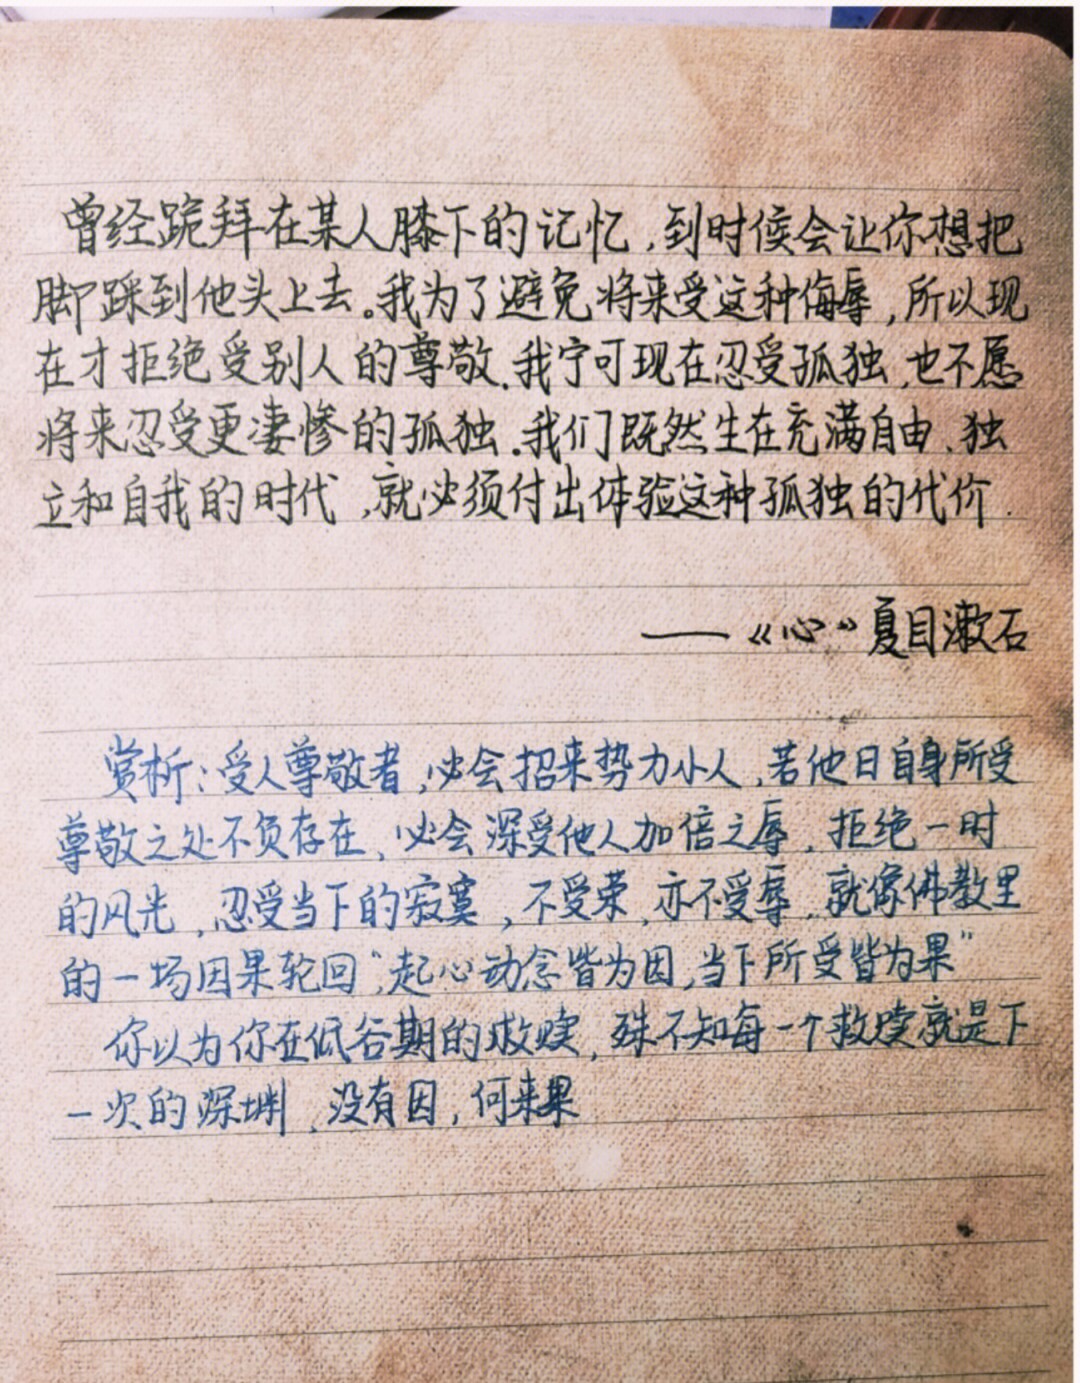 曾经跪拜在某人膝下的记忆,到时候会让你想把
脚踩到他头上去。我为了避免将来受这种侮辱,所以现
在才拒绝受别人的尊敬.我宁可现在忍受孤独,也不愿
将来忍受更凄惨的孤独.我们既然生在充满自由、独
立和自我的时代,就必须付出体验这种孤独的代价.
——《心》夏目漱石
赏析:受人尊敬者,必会招来势力小人,若他日自身所受
尊敬之处不负存在,必会深受他人加倍之辱,拒绝一时
的风光,忍受当下的寂寞,不受荣,亦不受辱,就像佛教里
的一场因果轮回“起心动念皆为因,当下所受皆为果”
你以为你在低谷期的救赎,殊不知每一个救赎就是下
一次的深渊,没有因,何来果